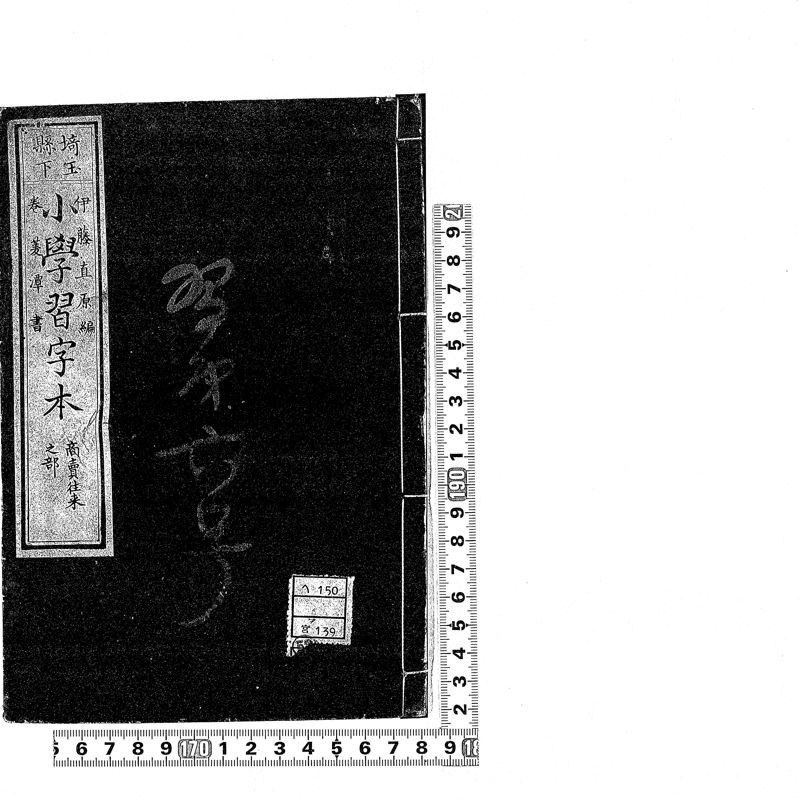 埼玉
縣下
伊藤直原編
小學習字本
巻菱潭書
商賣往来
之部
習字
六号
ヘ 150
宮 139
9 8 7 6 5 4 3 2 1 190 9 8 7 6 5 4 3 2
6 7 8 9 170 1 2 3 4 5 6 7 8 9